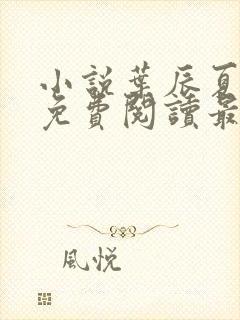 小説葉辰夏
免費閱讀最
風悅